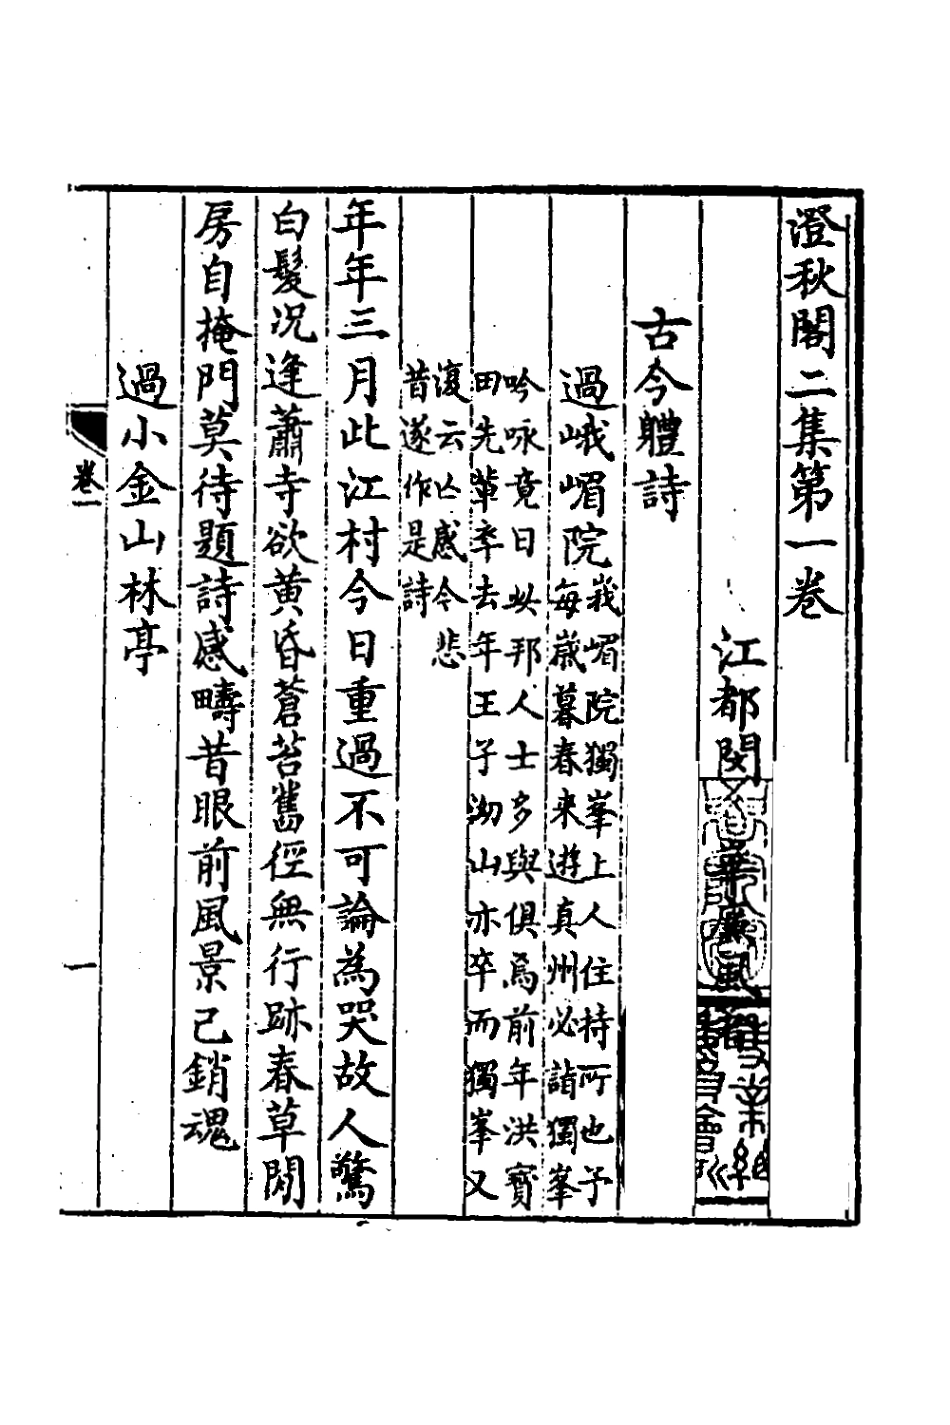 澄秋閣二集第一卷
江都閔華廉風
古今體詩
過峨嵋院
峩嵋院獨峯上人住持所也予
每歳暮春来遊真州必詣獨峯
吟咏竟日此邦人士多與俱焉前年洪寳
田先軰卒去年王子泑山亦卒而獨峯又
復云亡感今悲
昔遂作是詩
年年三月此江村今日重過不可論為哭故人驚
白髮况逢蕭寺欲黄昏蒼苔舊徑無行跡春草閒
房自掩門莫待題詩感疇昔眼前風景已銷魂
過小金山林亭
卷一
一